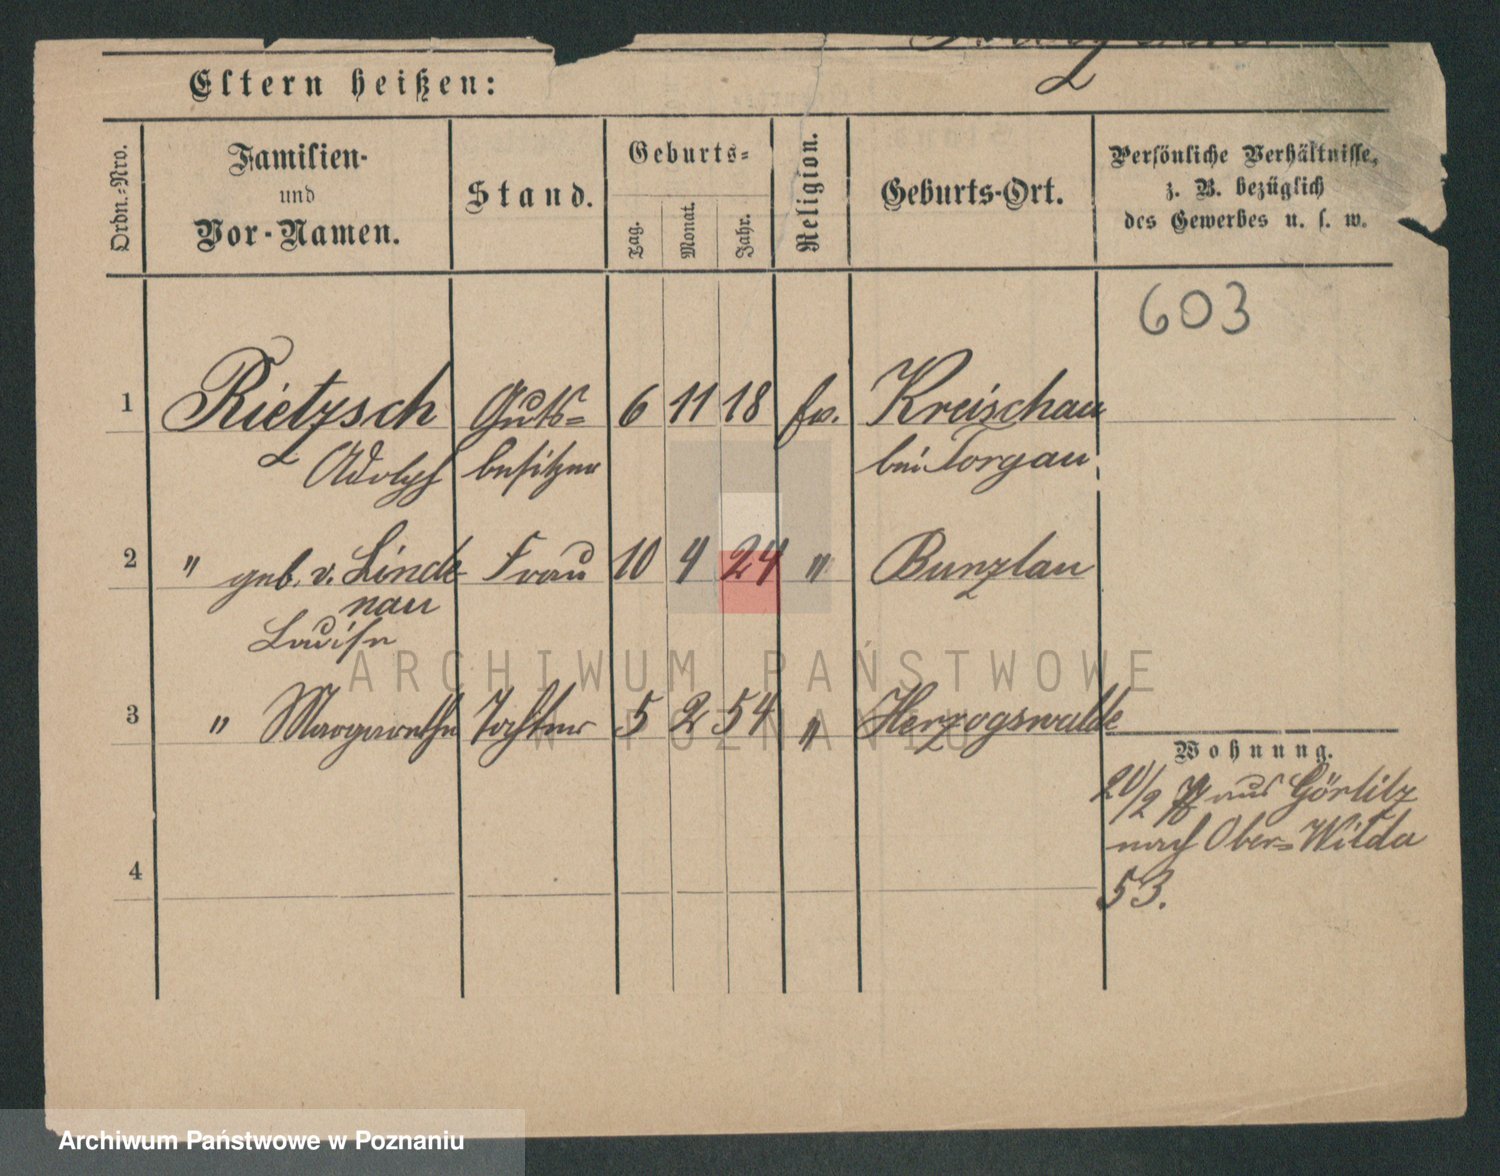 Eltern heißen:
Ordn.-Nro.
Familien-
und
Vor-Namen.
Stand.
Geburts-
Tag.
Monat.
Jahr.
Religion.
Geburts-Ort.
Persönliche Verhältnisse,
z. B. bezüglich
des Gewerbes u. s. w.
603
1 Rietzsch Guts= 6 11 18 ev. Kreischau
Adolph besitzer bei Torgau
2 " geb. v. Linde Frau 10 4 24 " Bunzlau
nau
Louise
3 " Margarethe Tochter 5 2 54 " Herzogswalde
Wohnung.
20/2 aus Görlitz
nach Ober=Wilda
53.
4
ARCHIWUM PAŃSTWOWE
W POZNANIU
Archiwum Państwowe w Poznaniu